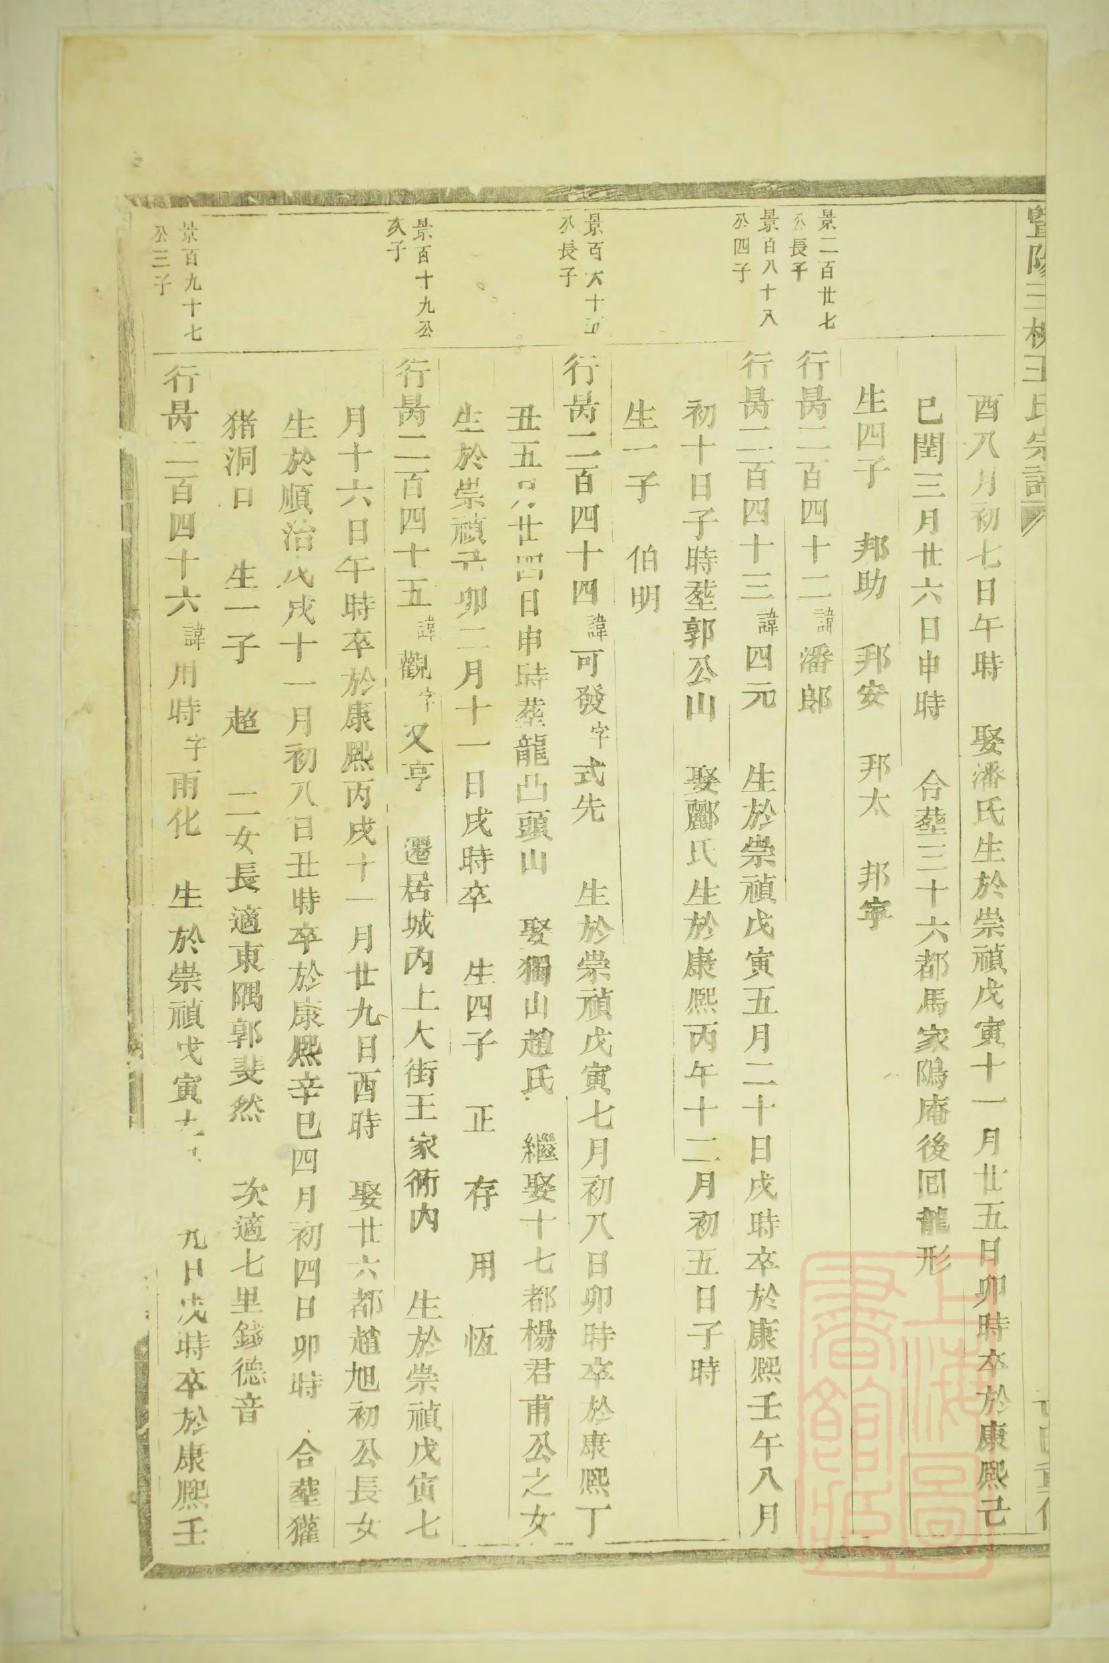 暨陽三桃王氏宗譜
酉八月初七日午時　娶潘氏生於崇禎戊寅十一月廿五日卯時卒於康熙己
巳閏三月廿六日申時　合塟三十六都馬家鴻庵後回龍形
景二百廿七公長子
生四子　邦助　邦安　邦太　邦寧
行昺二百四十二諱潘郎
景百八十八公四子
行昺二百四十三諱四元　生於崇禎戊寅五月二十日戌時卒於康熙壬午八月
初十日子時塟郭公山　娶酈氏生於康熙丙午十二月初五日子時
生一子　伯明
景百六十五公長子
行昺二百四十四諱可發字式先　生於崇禎戊寅七月初八日卯時卒於康熙丁
丑五月廿四日申時塟龍凸頭山　娶獨山趙氏　繼娶十七都楊君甫公之女
生於崇禎己卯二月十一日戌時卒　生四子　正　存　用　恆
景百十九公次子
行昺二百四十五諱觀字又亨　遷居城內上大街王家衖內　生於崇禎戊寅七
月十六日午時卒於康熙丙戌十一月廿九日酉時　娶廿六都趙旭初公長女
生於順治戊戌十一月初八日丑時卒於康熙辛巳四月初四日卯時　合塟獾
猪洞口　生一子　超　二女長適東隅郭斐然　次適七里錢德音
景百九十七公三子
行昺二百四十六諱用時字雨化　生於崇禎戊寅九日戌時卒於康熙壬
上海圖書館藏